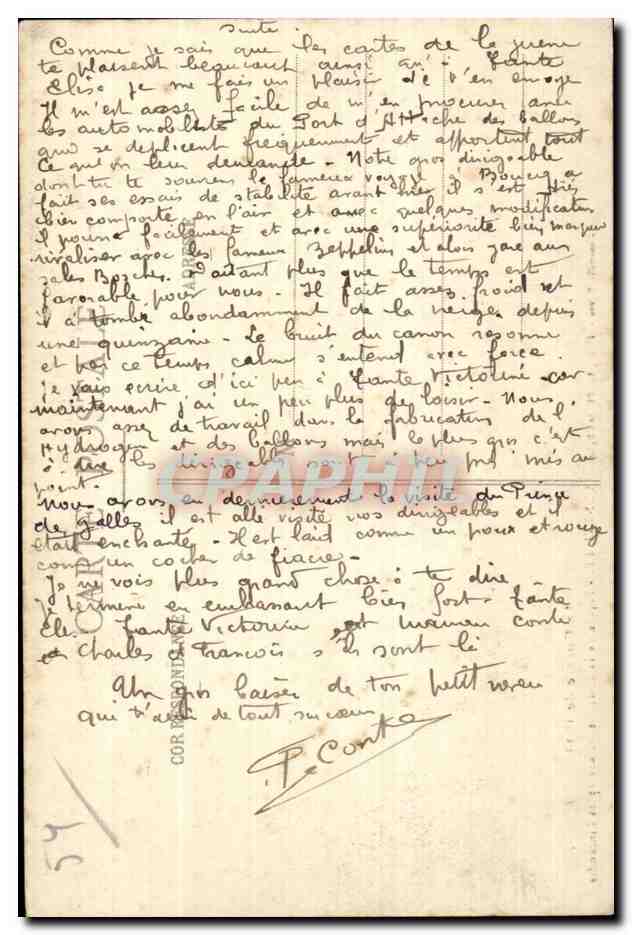 suite.
Comme je sais que les cartes de la guerre
te plaisent beaucoup ainsi qu'à tante
Elise je me fais un plaisir de t'en envoye
Il m'est assez facile de m'en procurer avec
les automobiliste du Port d'Attache des ballons
qui se deplicent frequemment et apportent tout
ce qu'on leur demande - Notre gros dirigeable
dont tu te souvens le fameux voyage à a
fait ses essais de stabilité avant hier il s'est très
bien comporte en l'air et avec quelques modification
il pourra facilement et avec une supériorité bien marquée
rivaliser avec les fameux Zeppelins et alors gare aux
sales Bosches. D'autant plus que le temps est
favorable pour nous - Il fait assez froid et
il a tombé abondamment de la neige depuis
une quinzaine - Le bruit du canon resonne
et par ce temps calme s'entend avec force
je vais ecrire d'ici peu à tante Victorine car
maintenant j'ai un peu plus de loisir - Nous
avons assez de travail dans la fabrication de l'
Hydrogene et des ballons mais le plus gros c'est
à dire les dirigeable sont à peu pres mis au
point.
Nous avons eu dernierement la visite du Prince
de Galles il est allé visite nos dirigeables et il
etait enchanté - Il est laid comme un poux et rouge
comme un cocher de fiacre -
Je ne vois plus grand chose à te dire
je termine en embrassant bien fort tante
Elise tante Victorine et maman Conte
et Charles et Francois s'ils sont là
Un gros baiser de ton petit neveu
qui t'aime de tout son coeur
P. Conte
54
CARTE POSTALE
CORRESPONDANCE
ADRESSE
CPAPHIL